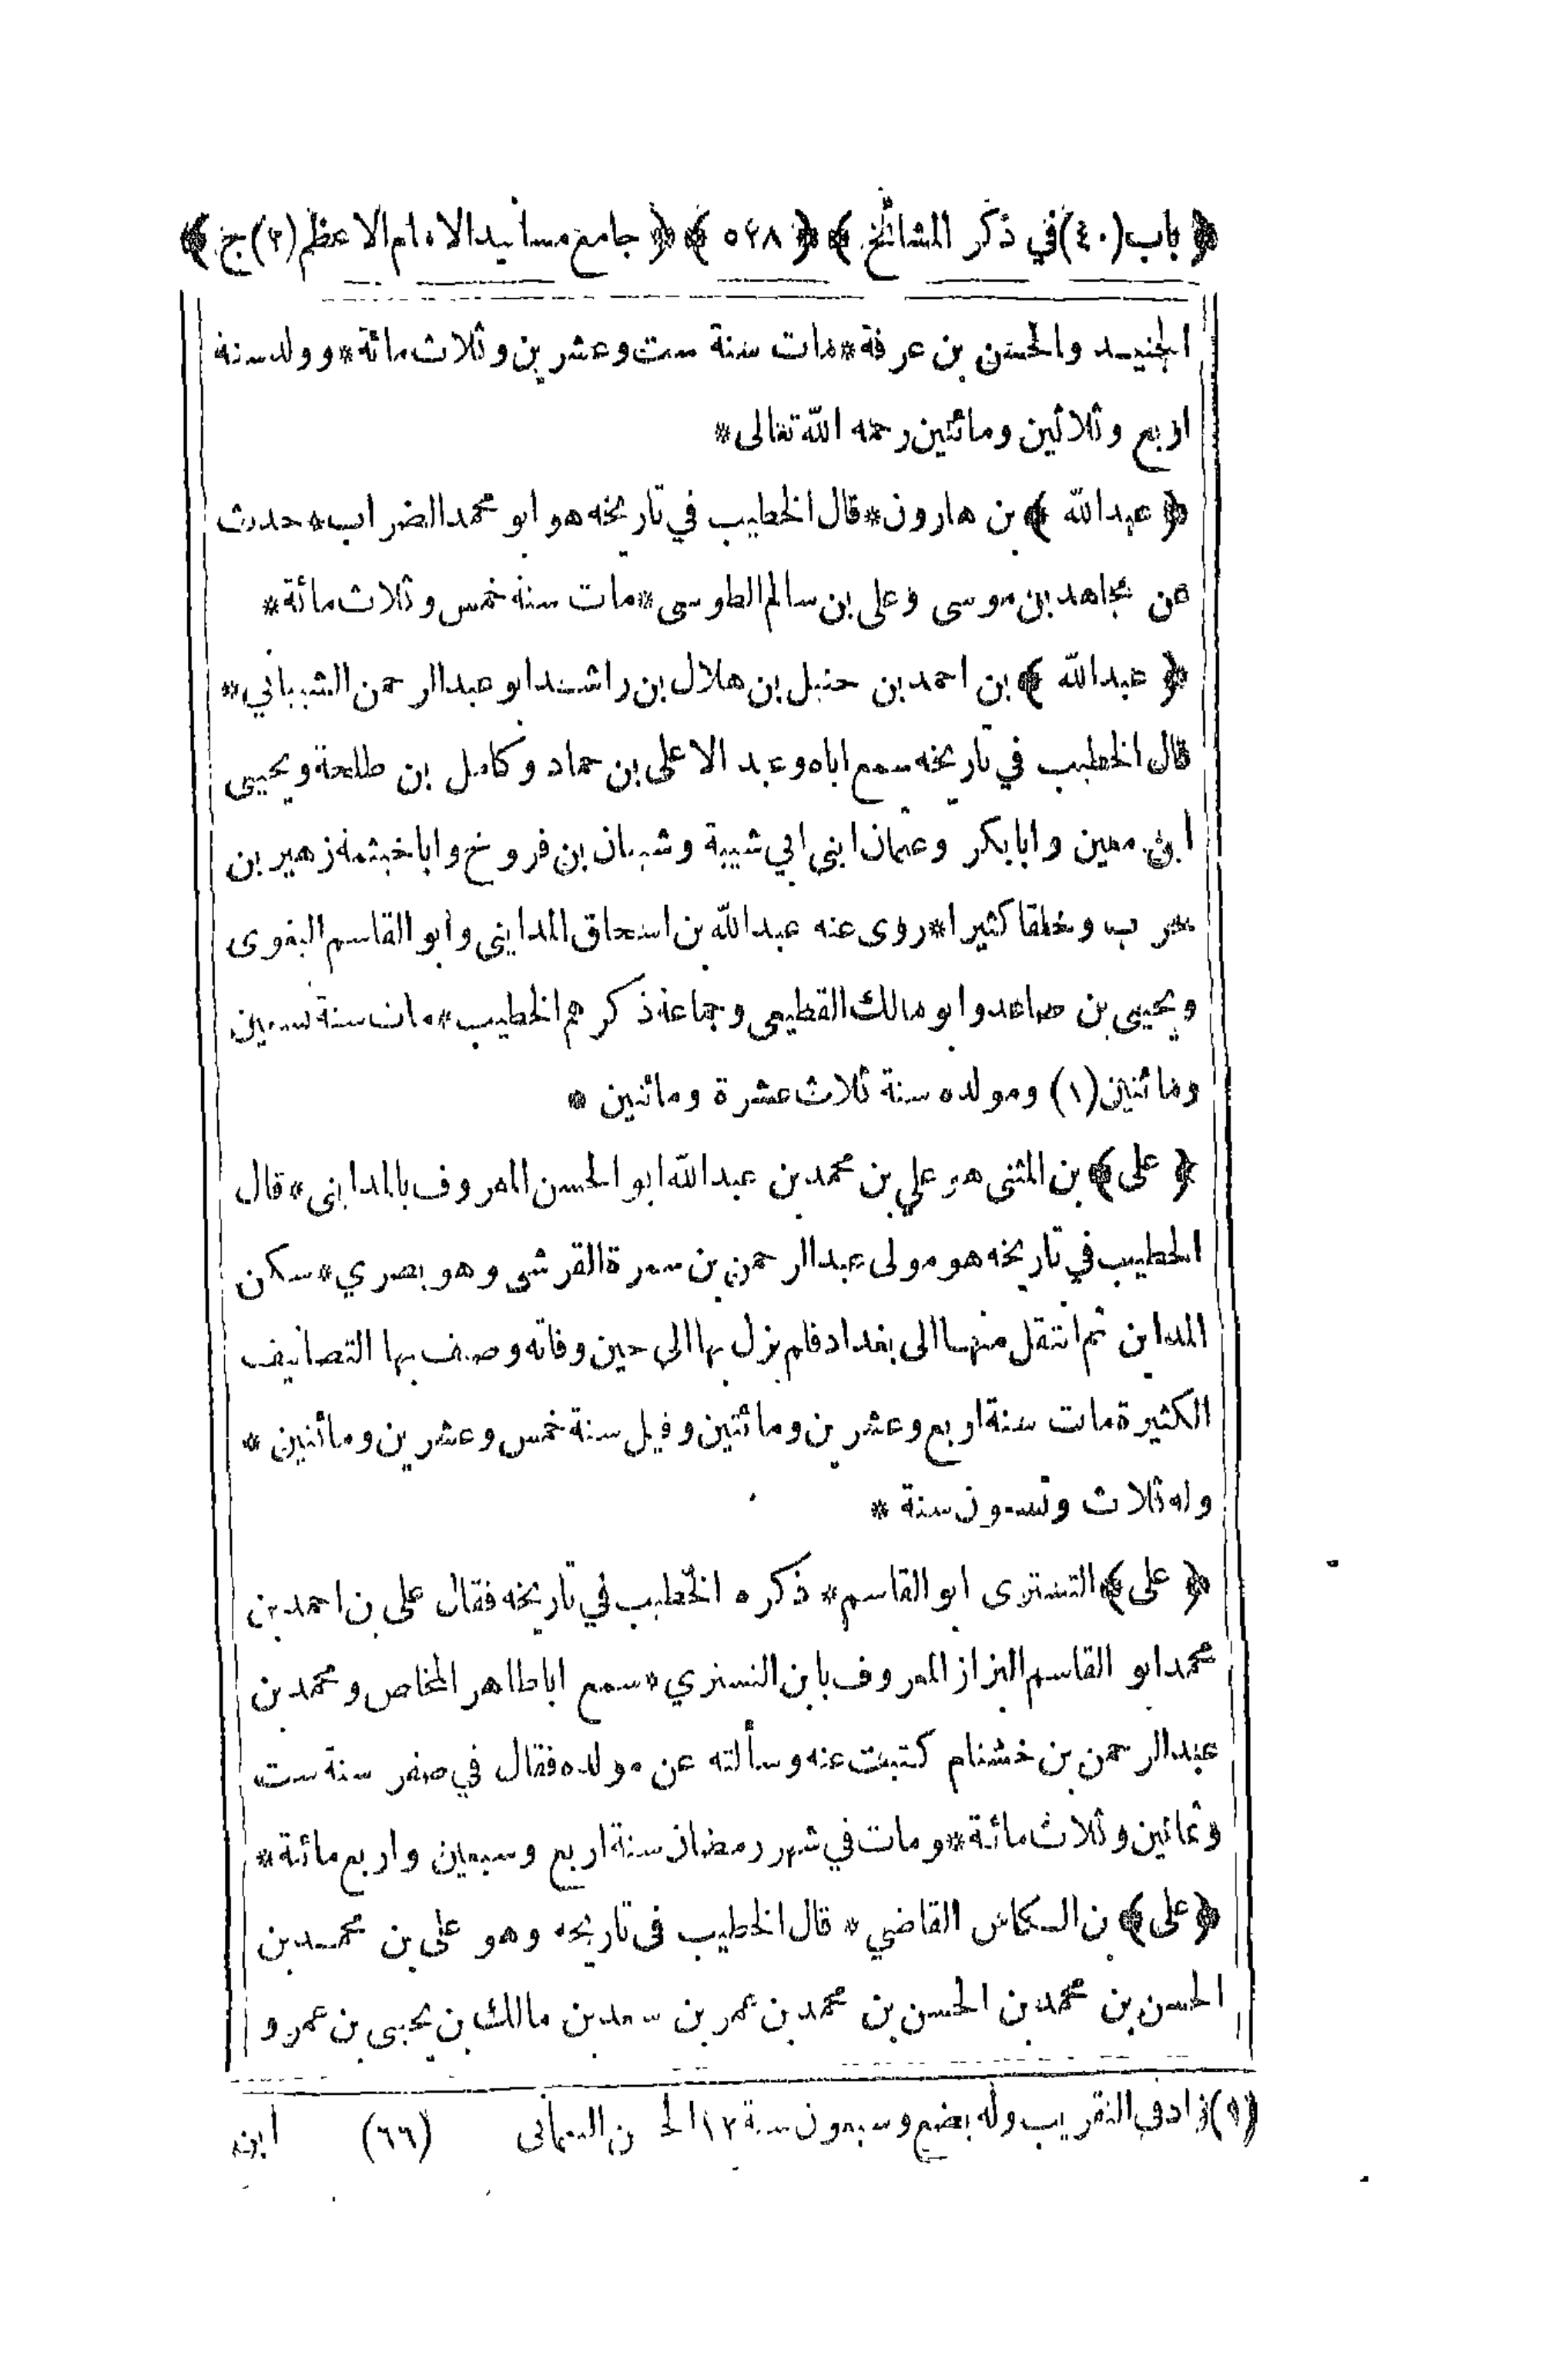 ﴿ باب (٤٠) في ذكر المشائخ ﴾ ﴿ ٥٢٨ ﴾ ﴿ جامع مسانيد الامام الاعظم (٢) ج ﴾
الجنيد والحسن بن عرفة * مات سنة ست وعشرين وثلاث مائة * وولد سنة
اربع وثلاثين ومائتين رحمه الله تعالى *
﴿ عبدالله ﴾ بن هارون * قال الخطيب في تاريخه هو ابو محمد الضراب * حدث
عن مجاهد بن موسى وعلى بن سالم الطوسى * مات سنة خمس وثلاث مائة *
﴿ عبدالله ﴾ بن احمد بن حنبل بن هلال بن راشد ابو عبد الرحمن الشيباني *
قال الخطيب في تاريخه سمع اباه وعبد الاعلى بن حماد وكامل بن طلحة ويحيى
ابن معين وابا بكر وعثمان ابنى ابي شيبة وشيبان بن فروخ وابا خيثمة زهير بن
حرب وخلقا كثيرا * روى عنه عبدالله بن اسحاق المدايني وابو القاسم البغوى
ويحيى بن صاعد وابو مالك القطيعى وجماعة ذكرهم الخطيب * مات سنة تسعين
ومائتين (١) ومولده سنة ثلاث عشرة ومائتين *
﴿ على ﴾ بن المثنى هو علي بن محمد بن عبدالله ابو الحسن المعروف بالمدايني * قال
الخطيب في تاريخه هو مولى عبدالرحمن بن سمرة القرشى وهو بصري * سكن
المداين ثم انتقل منها الى بغداد فلم يزل بها الى حين وفاته وصنف بها التصانيف
الكثيرة مات سنة اربع وعشرين ومائتين وقيل سنة خمس وعشرين ومائتين *
وله ثلاث وتسعون سنة *
﴿ على ﴾ التسترى ابو القاسم * ذكره الخطيب في تاريخه فقال على بن احمد بن
محمد ابو القاسم البزاز المعروف بابن التستري * سمع ابا طاهر المخلص ومحمد بن
عبدالرحمن بن خشنام كتبت عنه وسألته عن مولده فقال في صفر سنة ست
وثمانين وثلاث مائة * ومات في شهر رمضان سنة اربع وسبعين واربع مائة *
﴿ على ﴾ بن الكاس القاضي * قال الخطيب فى تاريخه وهو على بن محمد بن
الحسن بن محمد بن الحسن بن محمد بن عمر بن سعد بن مالك بن يحيى بن عمرو
(١) زاد في التقريب وله بضع وسبعون سنة ١٢ الحسن النعمانى (٦٦) ابن